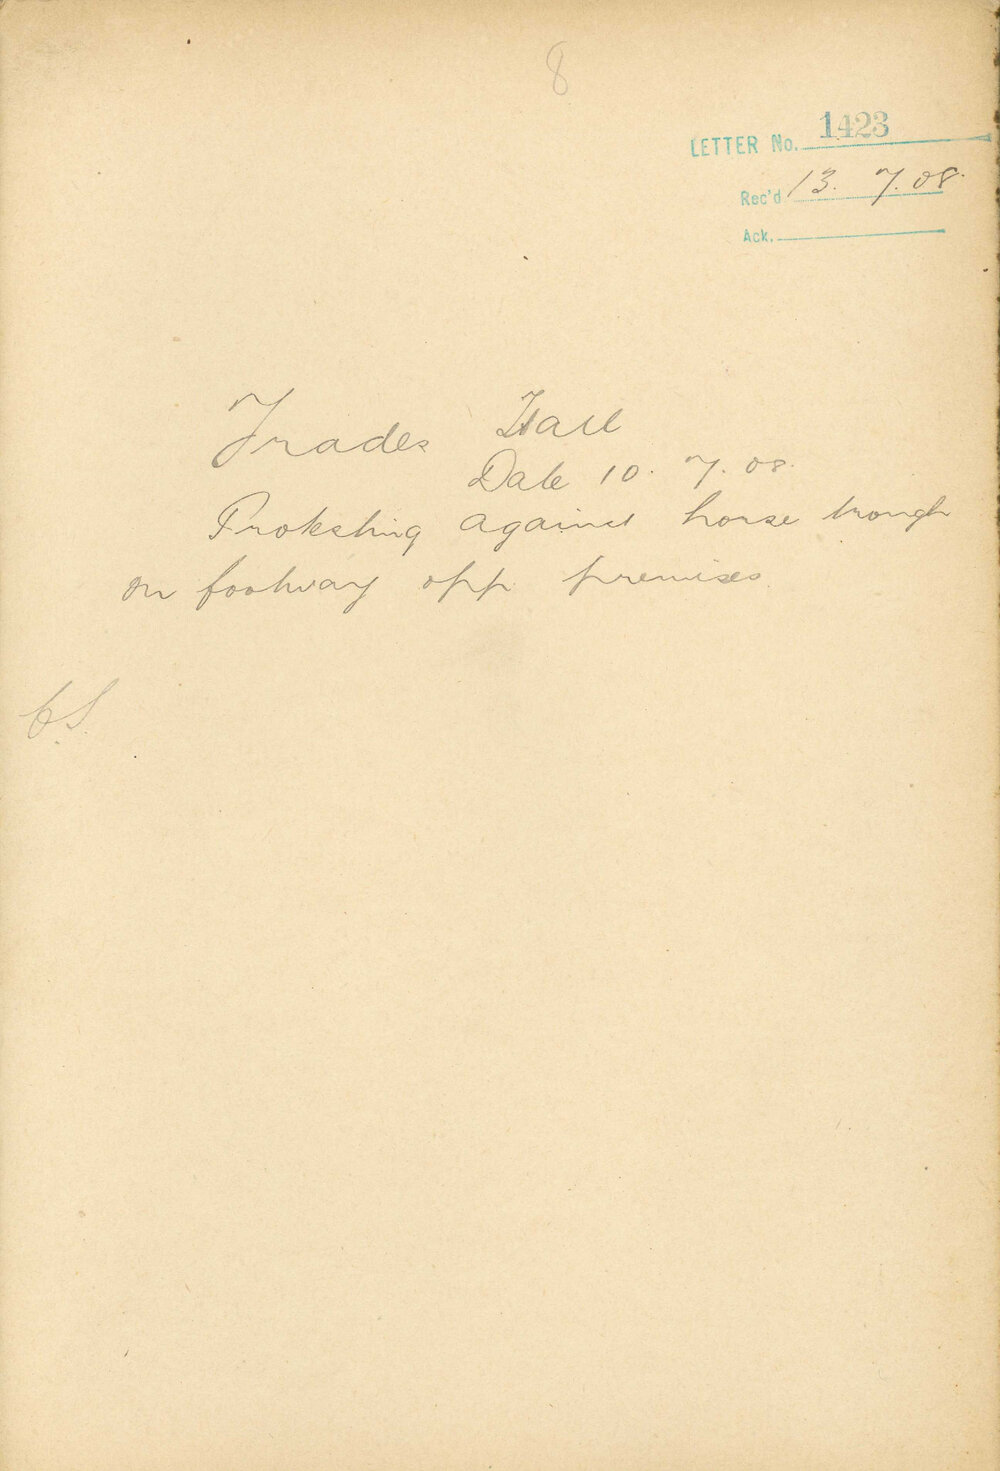 8
LETTER No. 1423
Rec'd 13. 7. 08.
Ack.
Trades Hall
Date 10. 7. 08.
Protesting against horse trough
on footway opp premises